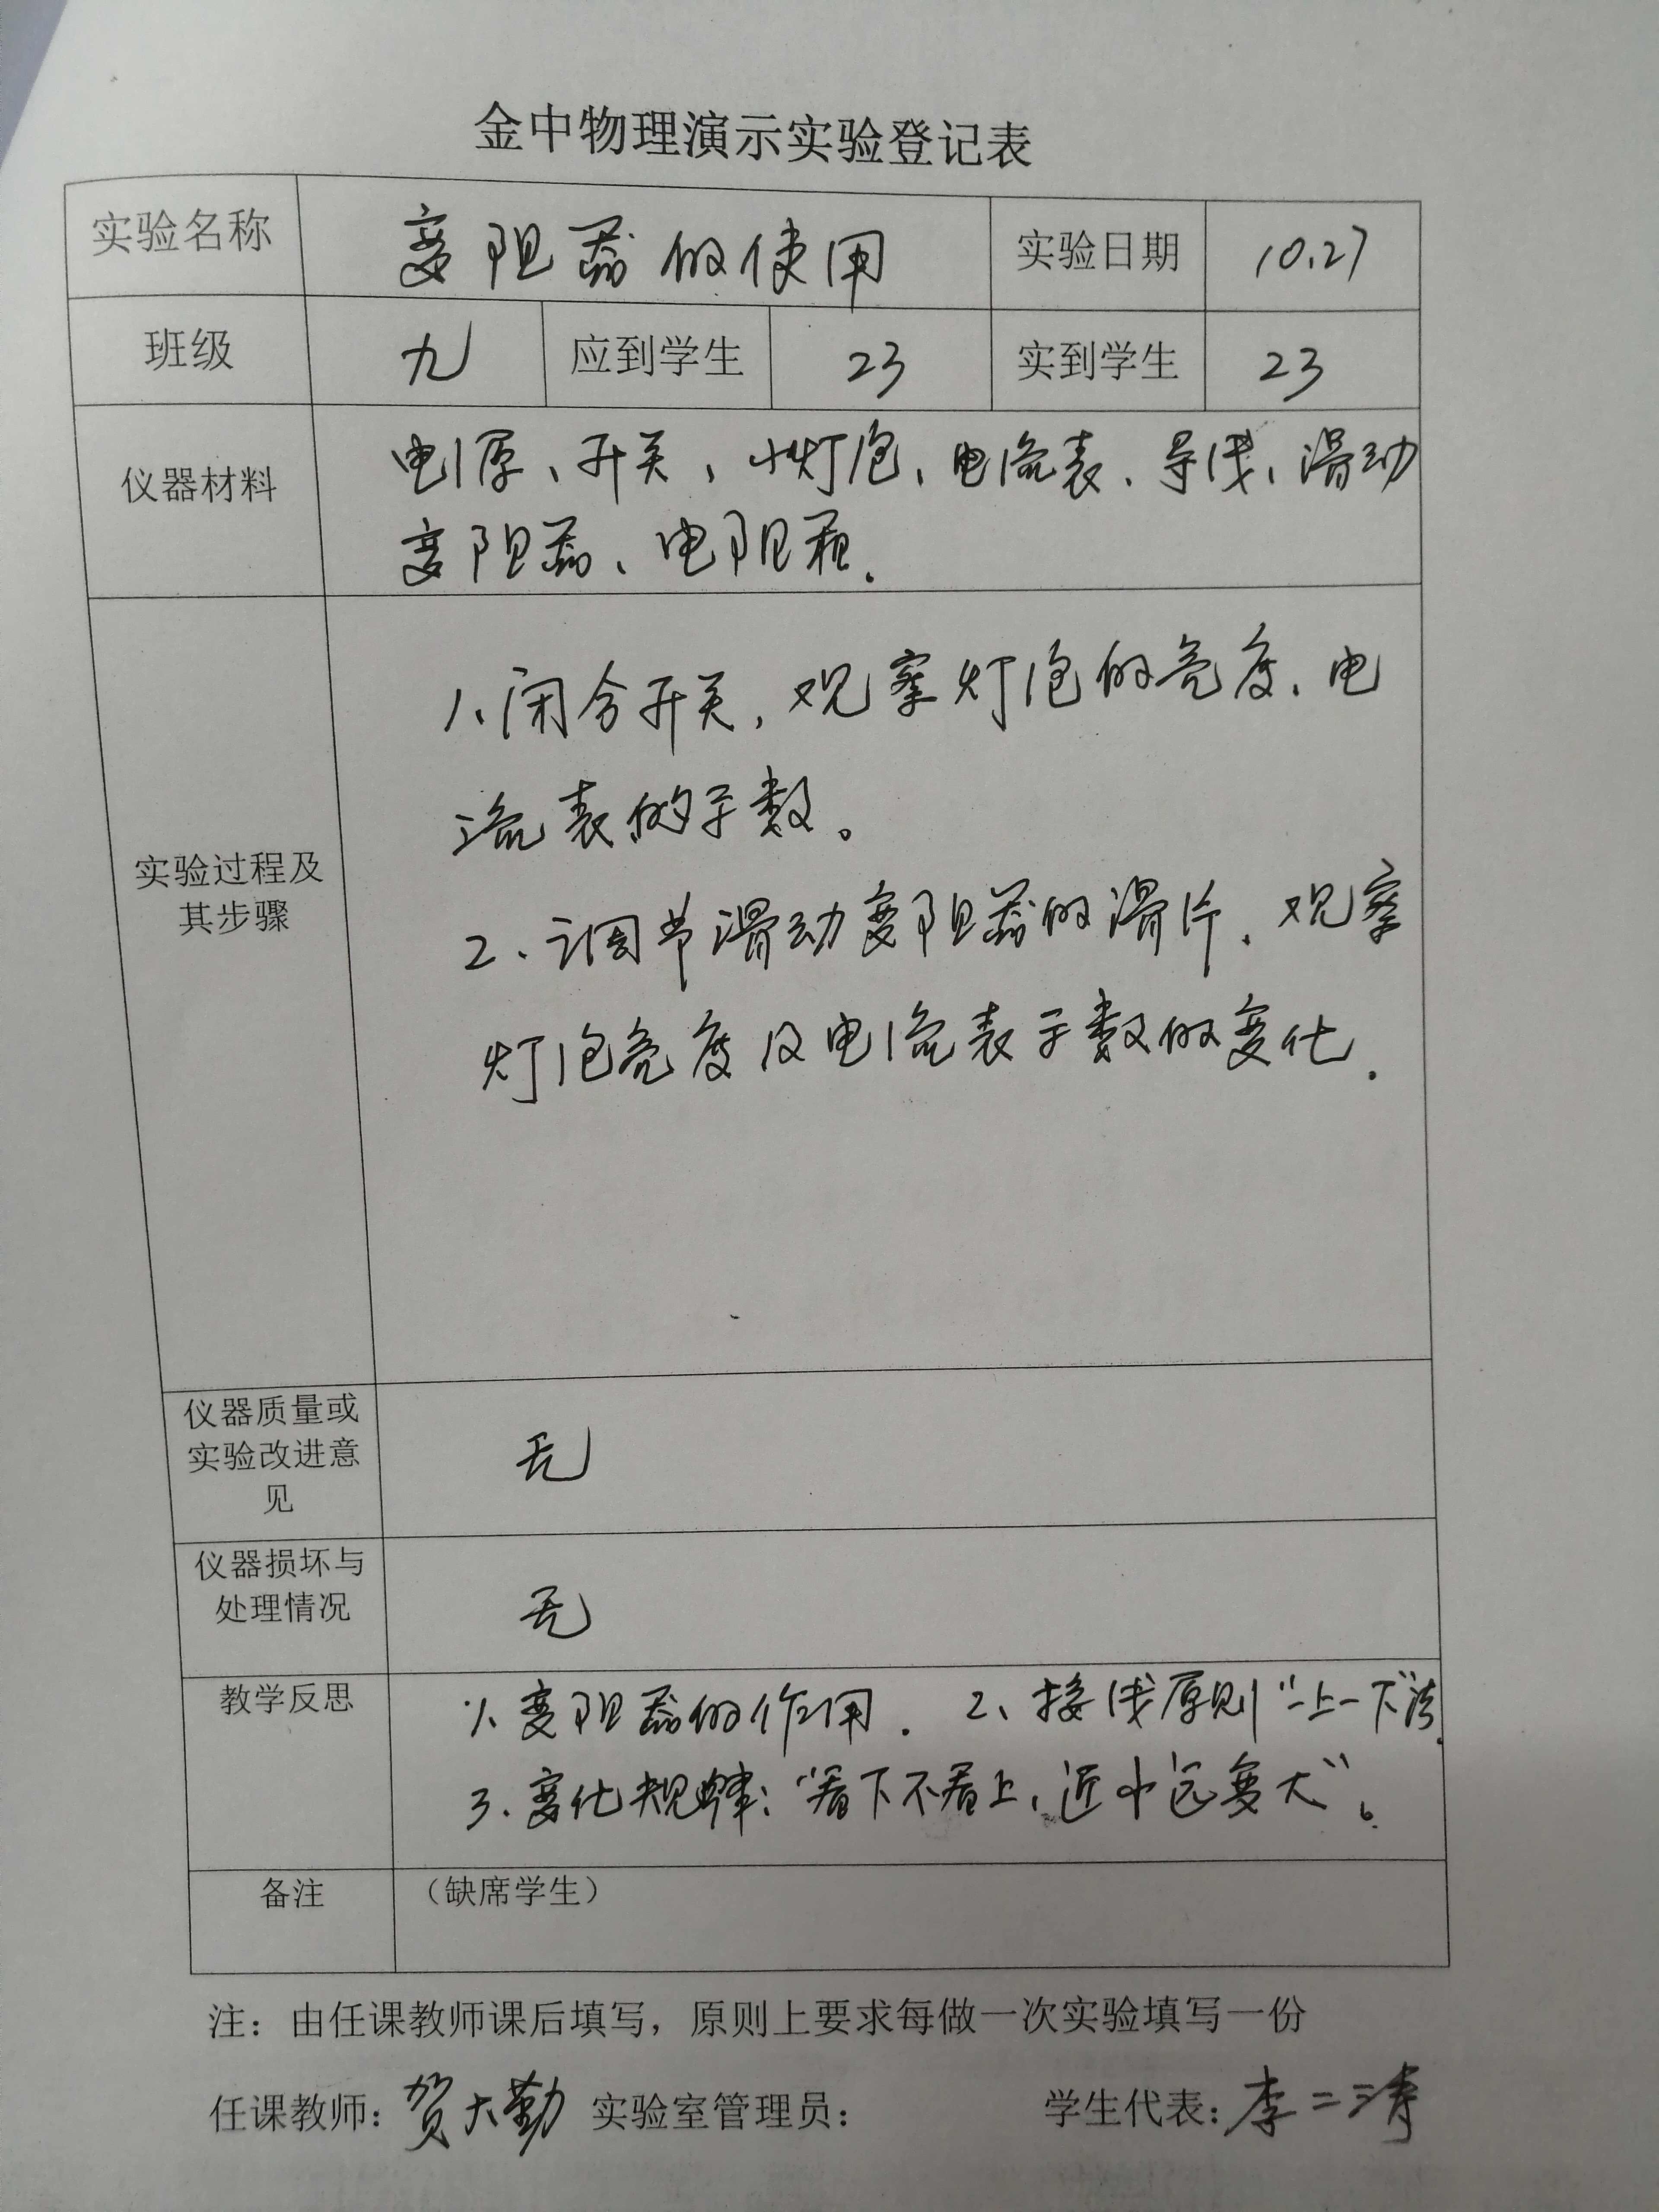 金中物理演示实验登记表
实验名称 变阻器的使用 实验日期 10.27
班级 九 应到学生 23 实到学生 23
仪器材料
电源、开关、小灯泡、电流表、导线、滑动
变阻器、电阻箱.
实验过程及
其步骤
1、闭合开关,观察灯泡的亮度、电
流表的示数。
2、调节滑动变阻器的滑片、观察
灯泡亮度及电流表示数的变化.
仪器质量或
实验改进意
见
无
仪器损坏与
处理情况
无
教学反思
1、变阻器的作用. 2、接线原则“一上一下”法.
3、变化规律:“看下不看上,近小远变大”。
备注 (缺席学生)
注:由任课教师课后填写,原则上要求每做一次实验填写一份
任课教师:贺大勤 实验室管理员: 学生代表:李二涛